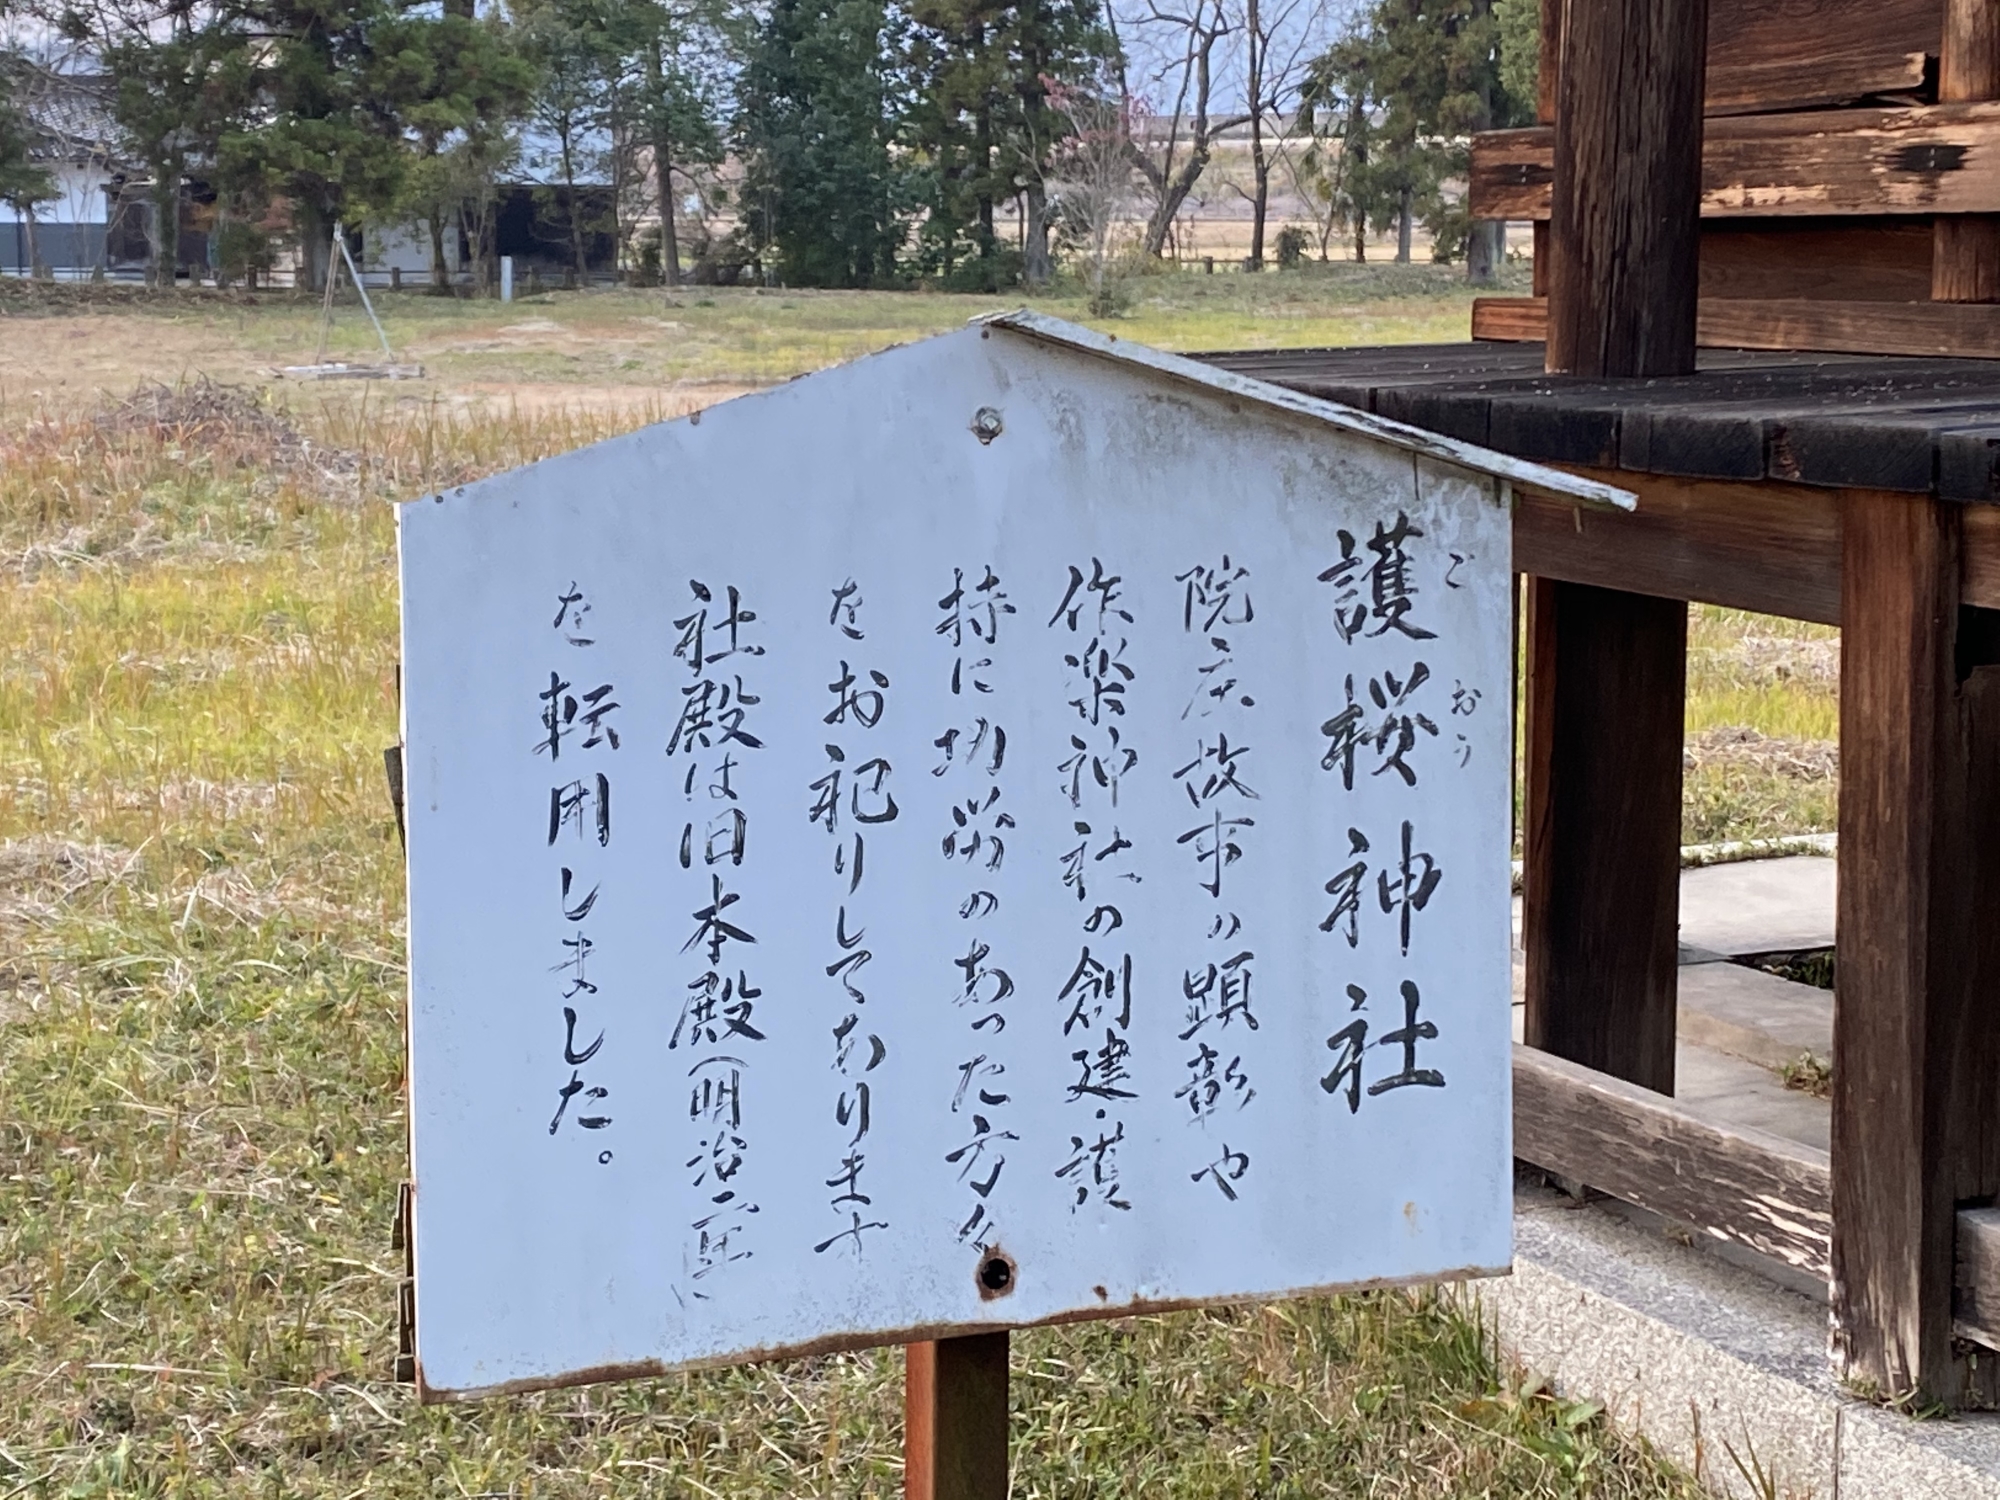 護桜神社
ごおう
院庄故事の顕彰や
作楽神社の創建・護
持に功労のあった方々
をお祀りしてあります
社殿は旧本殿(明治二年
を転用しました。